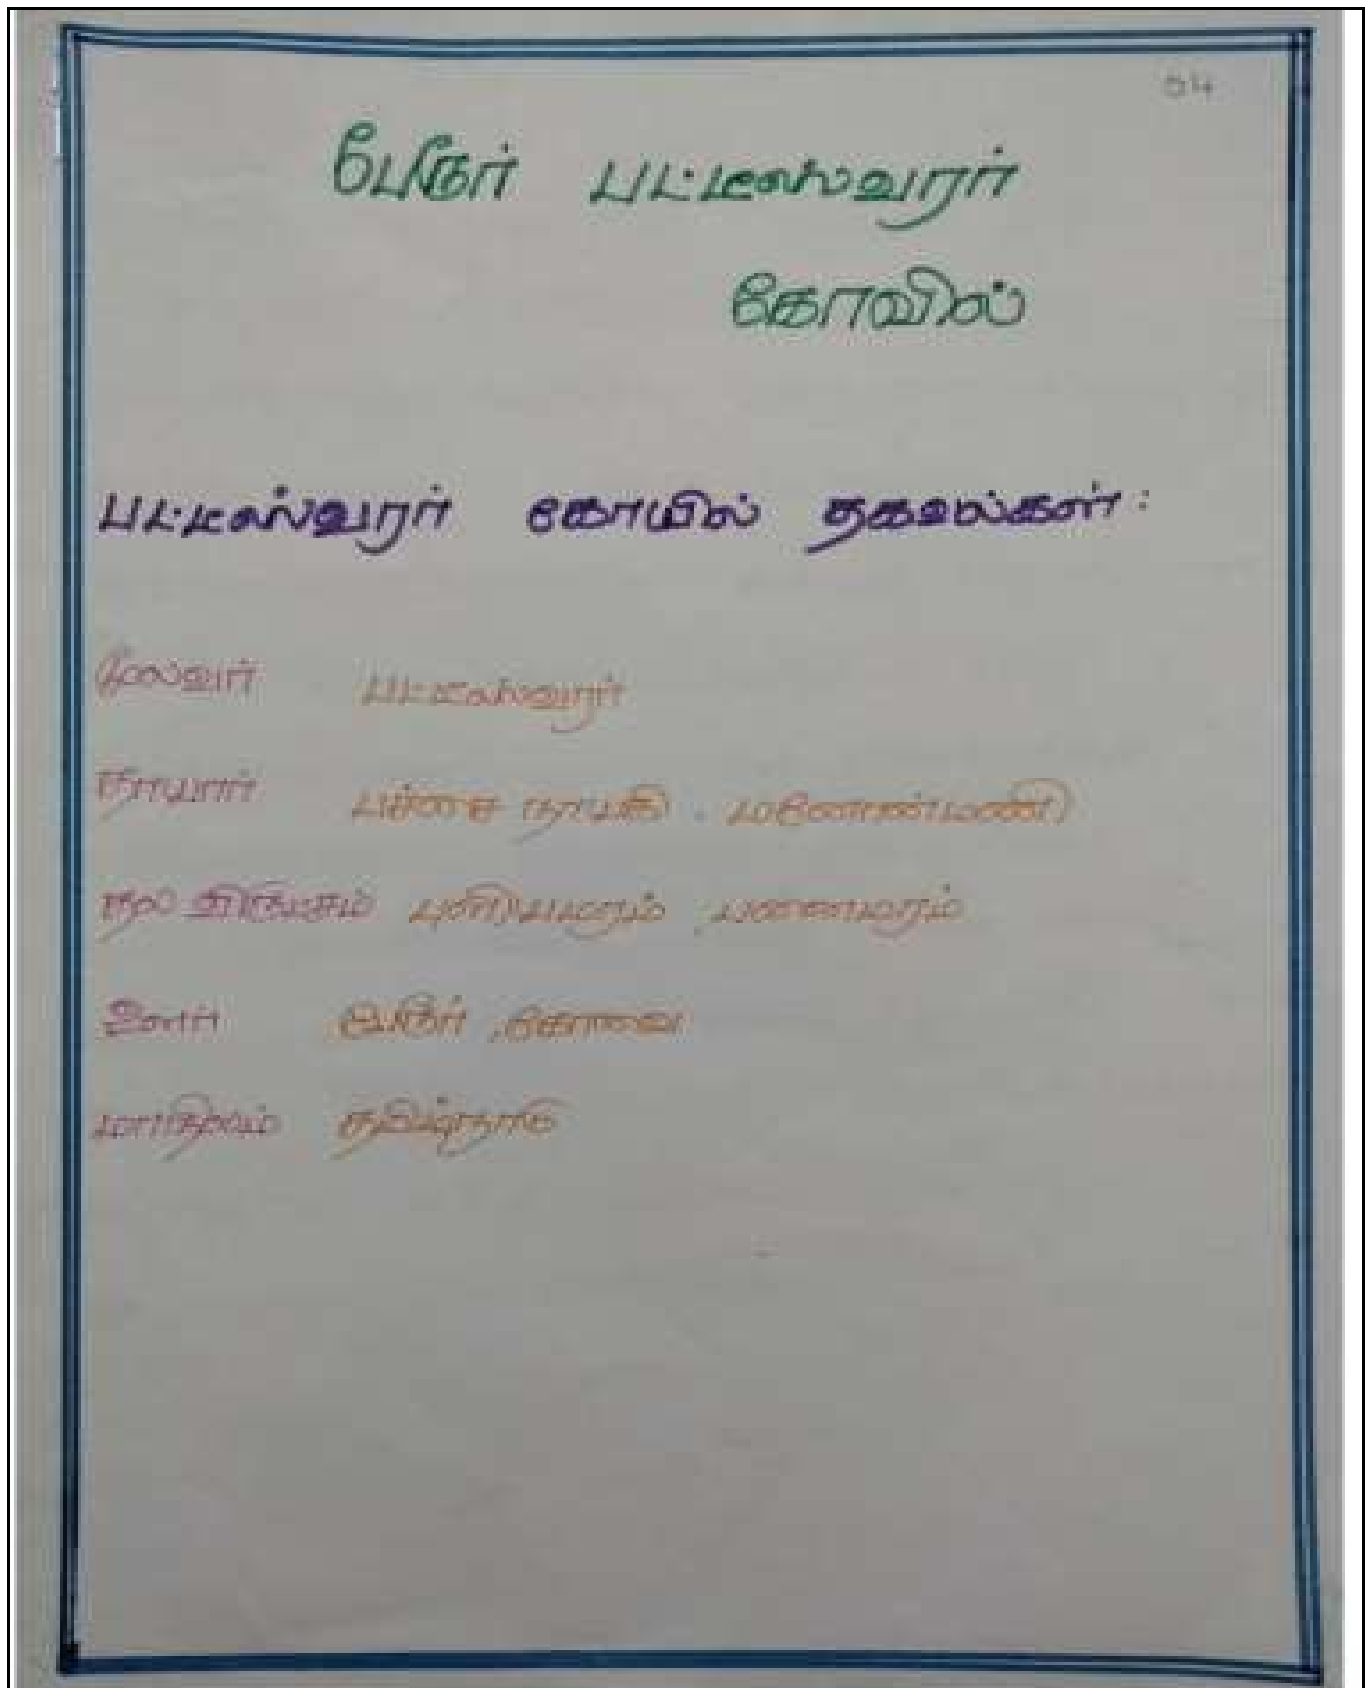 04
பேரூர் பட்டீஸ்வரர்
கோவில்
பட்டீஸ்வரர் கோயில் தகவல்கள் :
மூலவர் பட்டீஸ்வரர்
தாயார் பச்சை நாயகி , மனோன்மணி
தல விருட்சம் புளியமரம் , பனைமரம்
ஊர் பேரூர் , கோவை
மாநிலம் தமிழ்நாடு